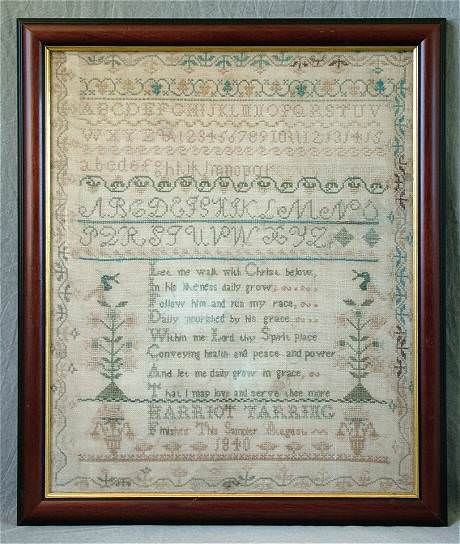 ABCDEFGHIJKLMNOPQRSTUV
WXYZ&123456789101112131415
abcdefghijklmnopqr
ABCDEFGHIKLMNO
PQRSTUVWXYZ
Let me walk with Christ below,
In his likeness daily grow;
Follow him and run my race,
Daily nourished by his grace
Within me Lord thy Spirit place
Conveying health and peace and power
And let me daily grow in grace,
That I may love and serve thee more
HARRIOT TARRING
Finished This Sampler August
1840